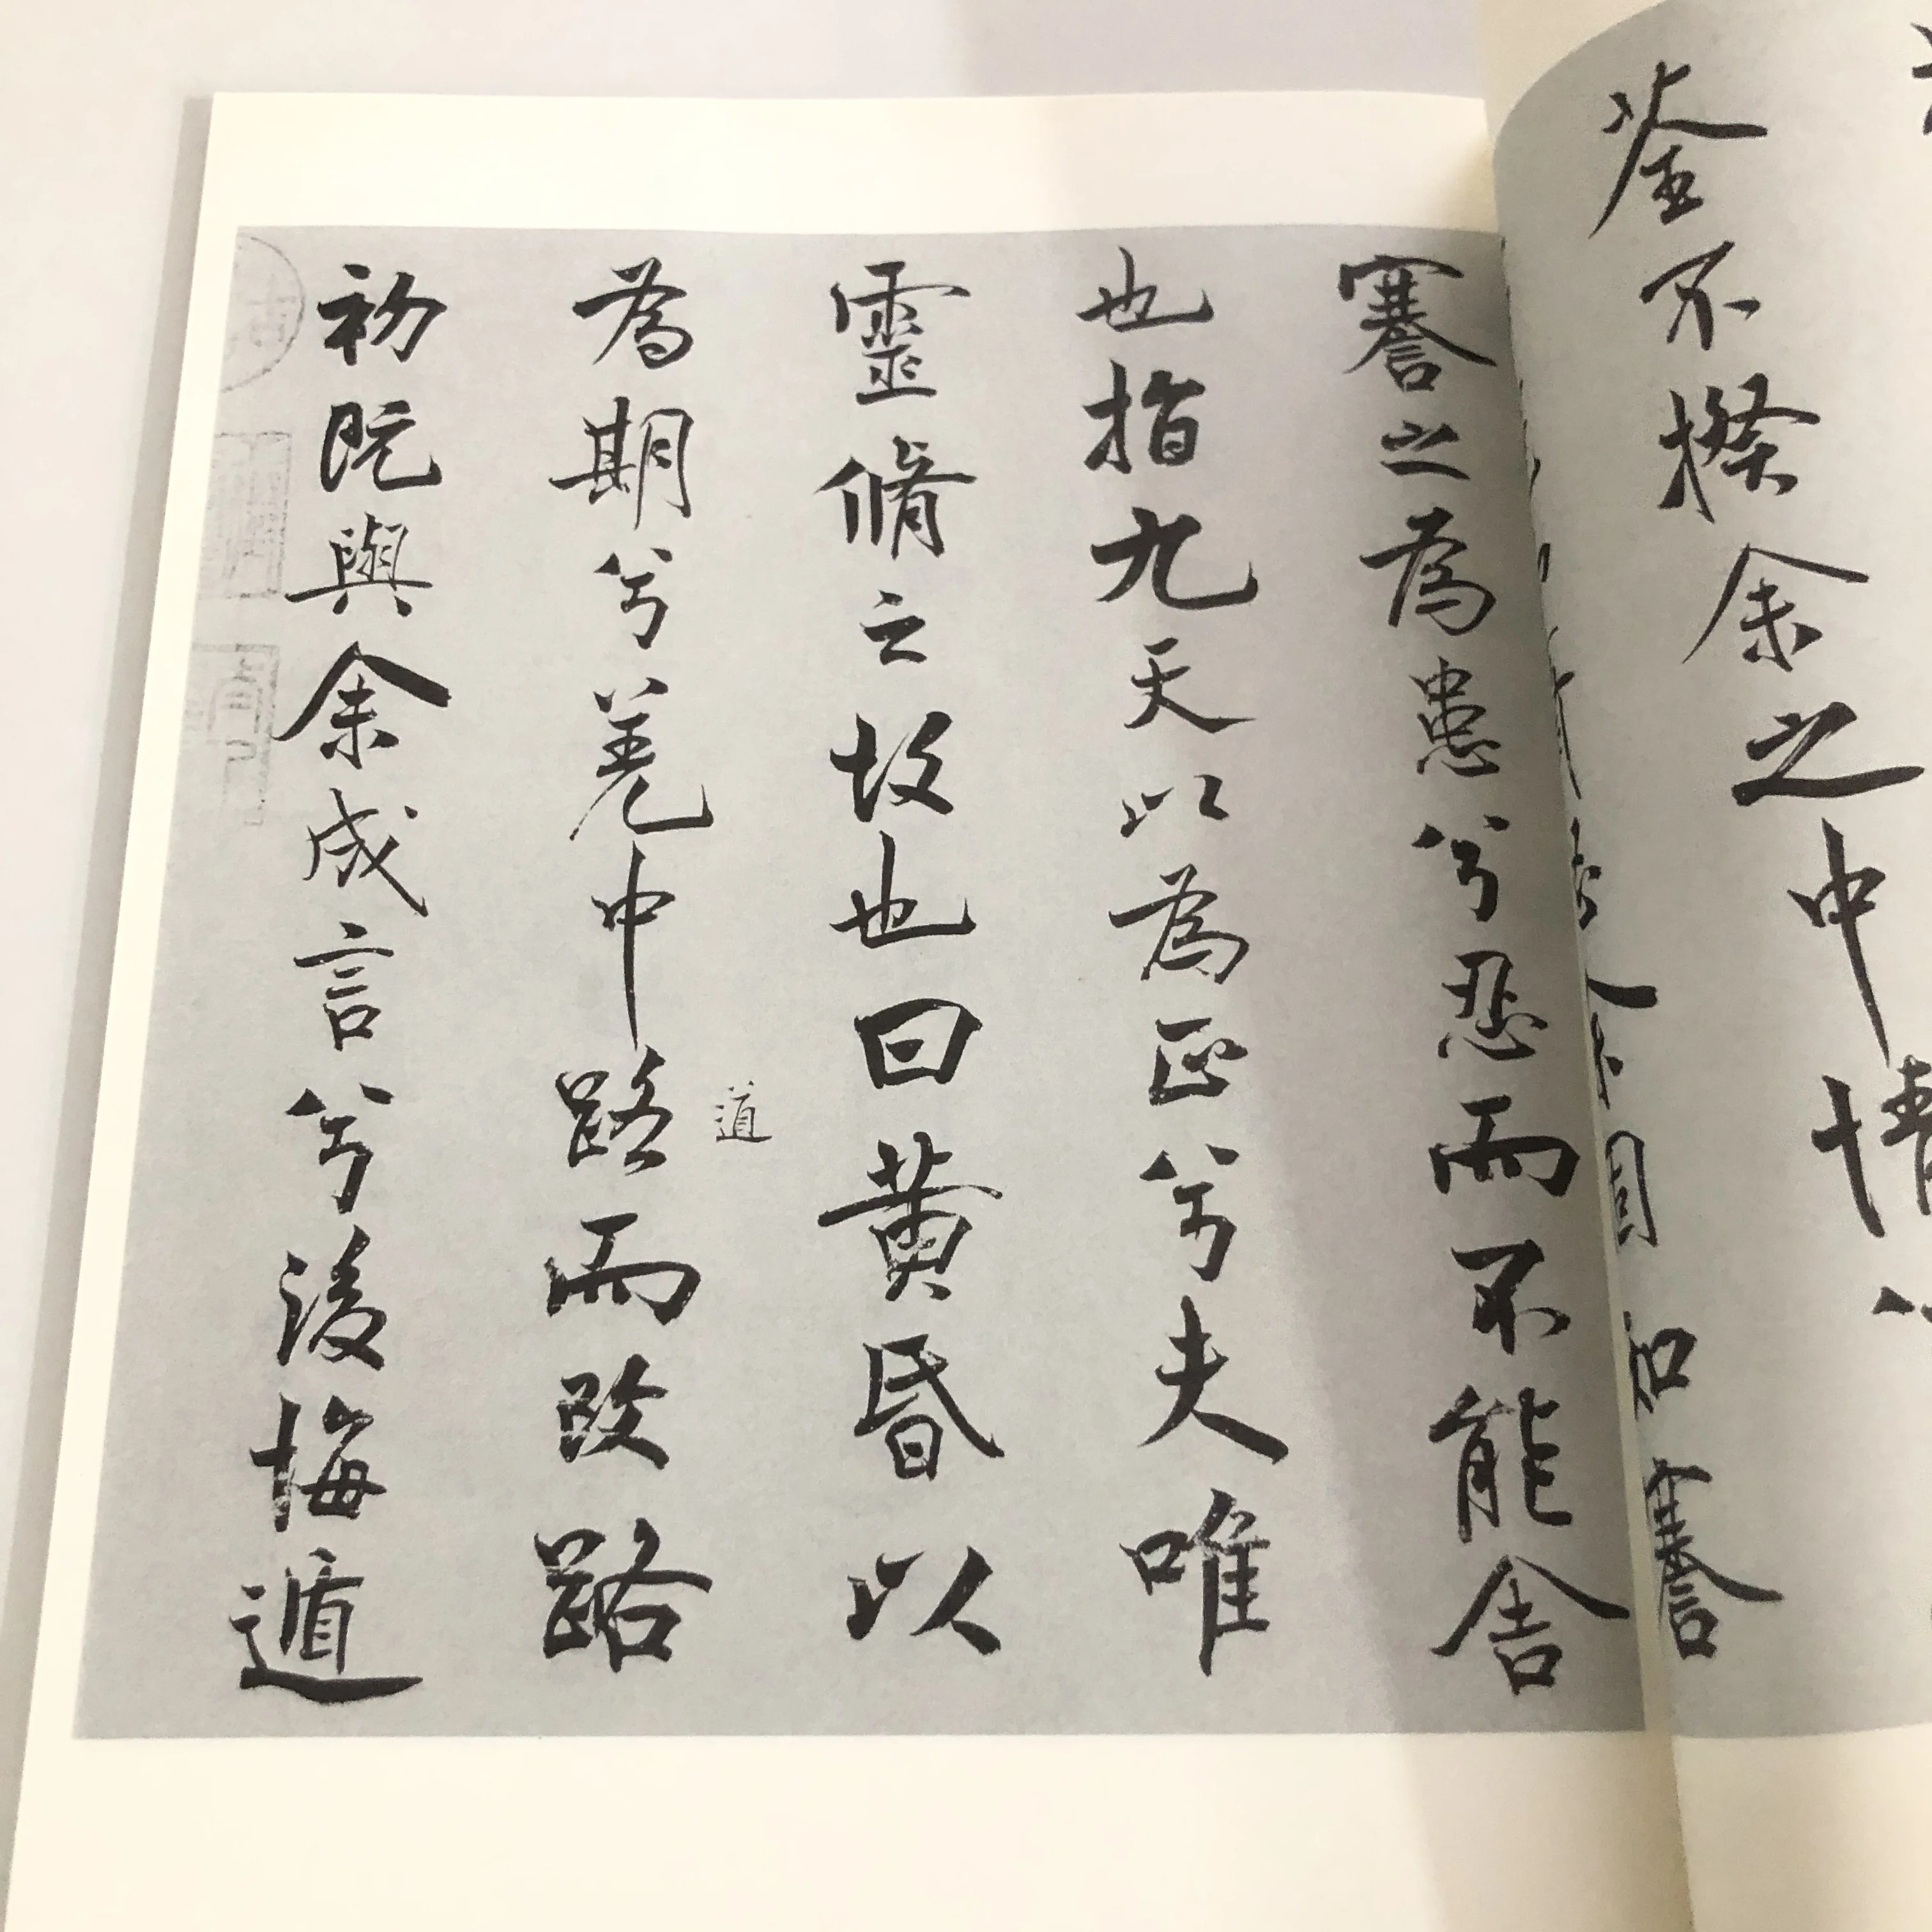 荃不揆余之中情
謇
謇之為患兮忍而不能舍
也指九天以為正兮夫唯
靈脩之故也曰黃昏以
為期兮羌中路而改路
道
初既與余成言兮後悔遁